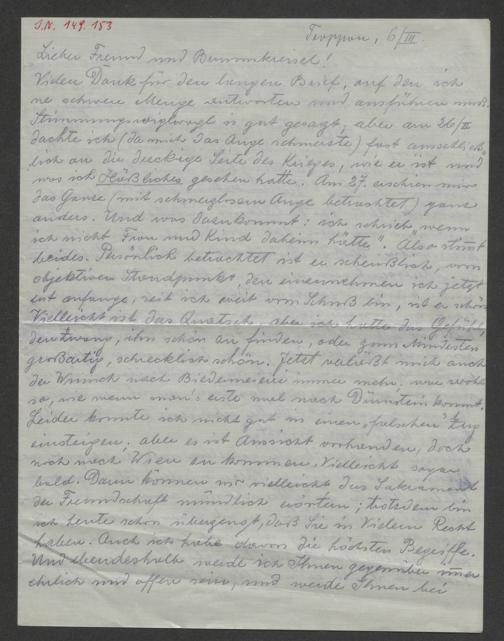 I.N. 149.153
Troppau, 6/III.
Lieber Freund und Brummkreisel!
Vielen Dank für den langen Brief, auf den ich
ne schwere Menge antworten und ausführen muß.
Stimmungs is gut gesagt, aber am 26/II
dachte ich (da mich das Auge schmerzte) fast ausschließ-
lich an die dreckige Seite des Krieges, wie er ist und
was ich Häßliches gesehen hatte. Am 27. erschien mir
das Ganze (mit schmerzlosem Auge betrachtet) ganz
anders. Und was dazukommt: ich schrieb, wenn
ich nicht Frau und Kind daheim hätte". Also stimmt
beides. Persönlich betrachtet ist er scheußlich, vom
objektiven Standpunkt, den einzunehmen ich jetzt
erst anfange, seit ich weit vom Schuß bin, ist er schön
Vielleicht ist das Quatsch, aber ich hatte das Gefühl,
den Zwang, ihn schön zu finden, oder zum Mindesten
großartig, schrecklich schön. Jetzt verläßt mich auch
der Wunsch nach Biedermeier immer mehr,
so, wie wenn man's erste mal nach Dürnstein kommt.
Leider konnte ich nicht gut in einen "falschen" Zug
einsteigen; aber es ist Aussicht vorhanden, doch
noch nach Wien zu kommen. Vielleicht sogar
bald. Dann können wir vielleicht das Sakrament
der Freundschaft mündlich erörtern; trotzdem bin
ich heute schon überzeugt, daß Sie in Vielem Recht
haben. Auch ich habe davon die höchsten Begriffe.
Und ebendeshalb werde ich Ihnen gegenüber immer
ehrlich und offen sein, und werde Ihnen bei